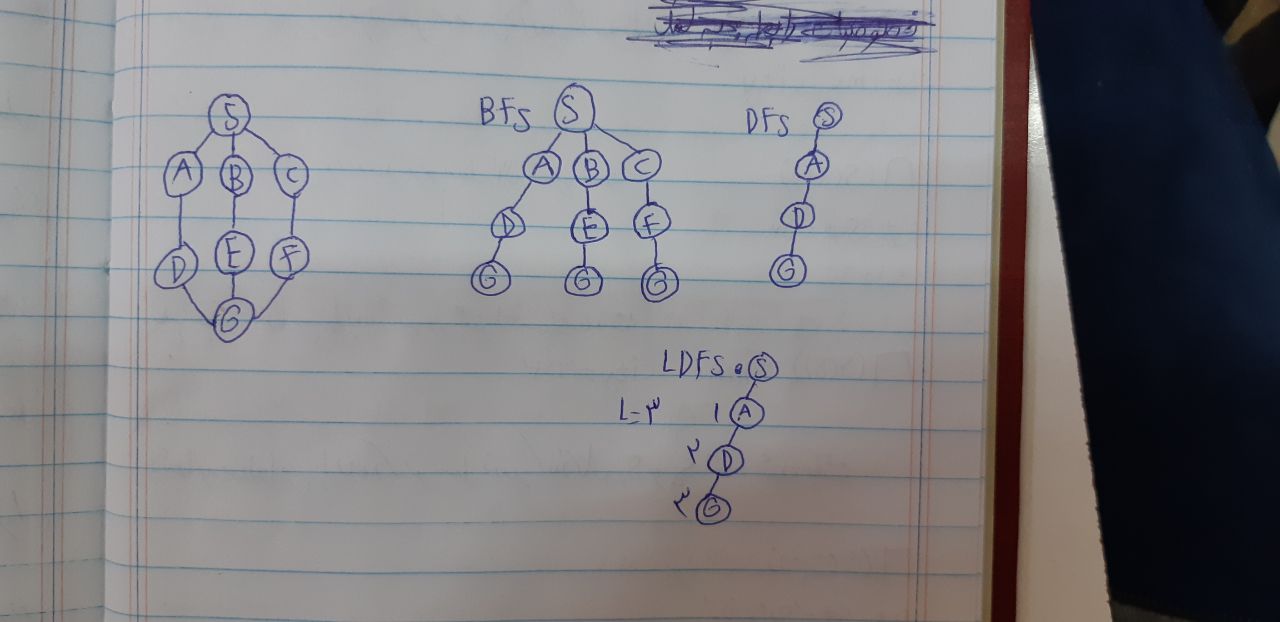 S
A B C
D E F
G
BFS S
A B C
D E F
G G G
DFS S
A
D
G
LDFS ۰ S
L=۳ ۱ A
۲ D
۳ G